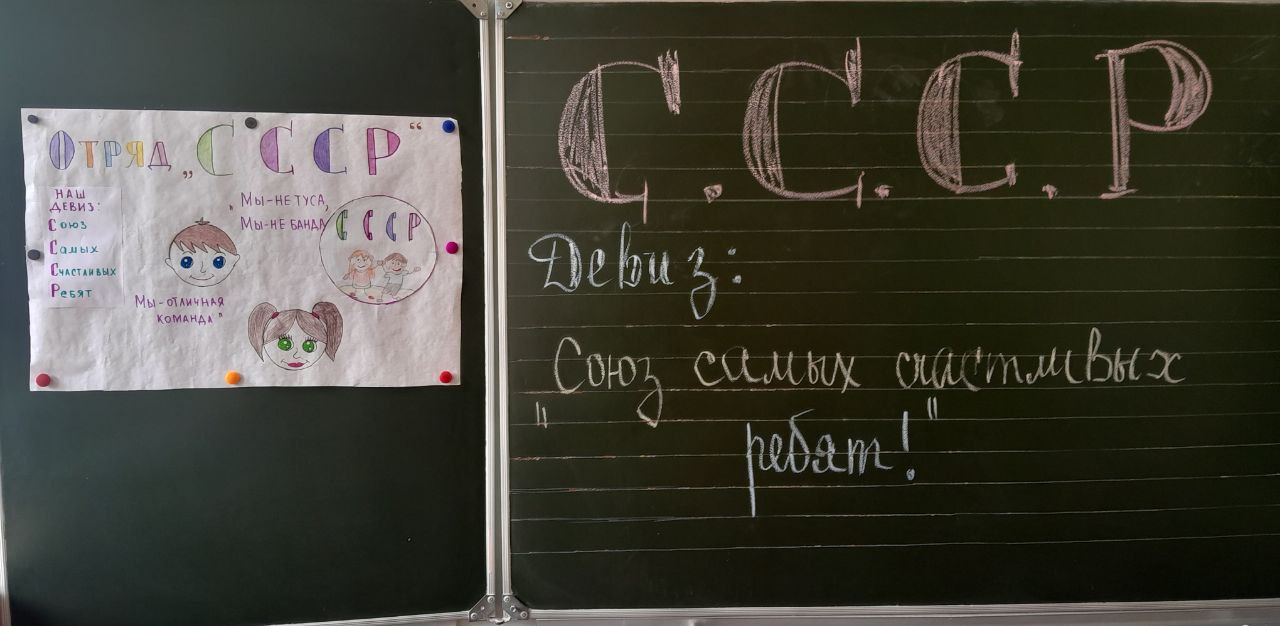 Отряд „СССР“
НАШ
ДЕВИЗ:
Союз
Самых
Счастливых
Ребят
„Мы-НЕ ТУСА,
Мы-НЕ БАНДА
СССР
Мы-ОТЛИЧНАЯ
КОМАНДА"
С.С.С.Р
Девиз:
"Союз самых счастливых
ребят!"